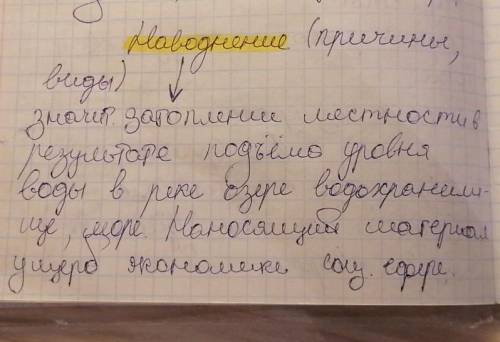 Наводнение (причины,
виды)
значит. затоплении местности в
результате подъёма уровня
воды в реке озере водохранили-
ще, море. Наносящий материал
ущерб экономики соц. сфере.